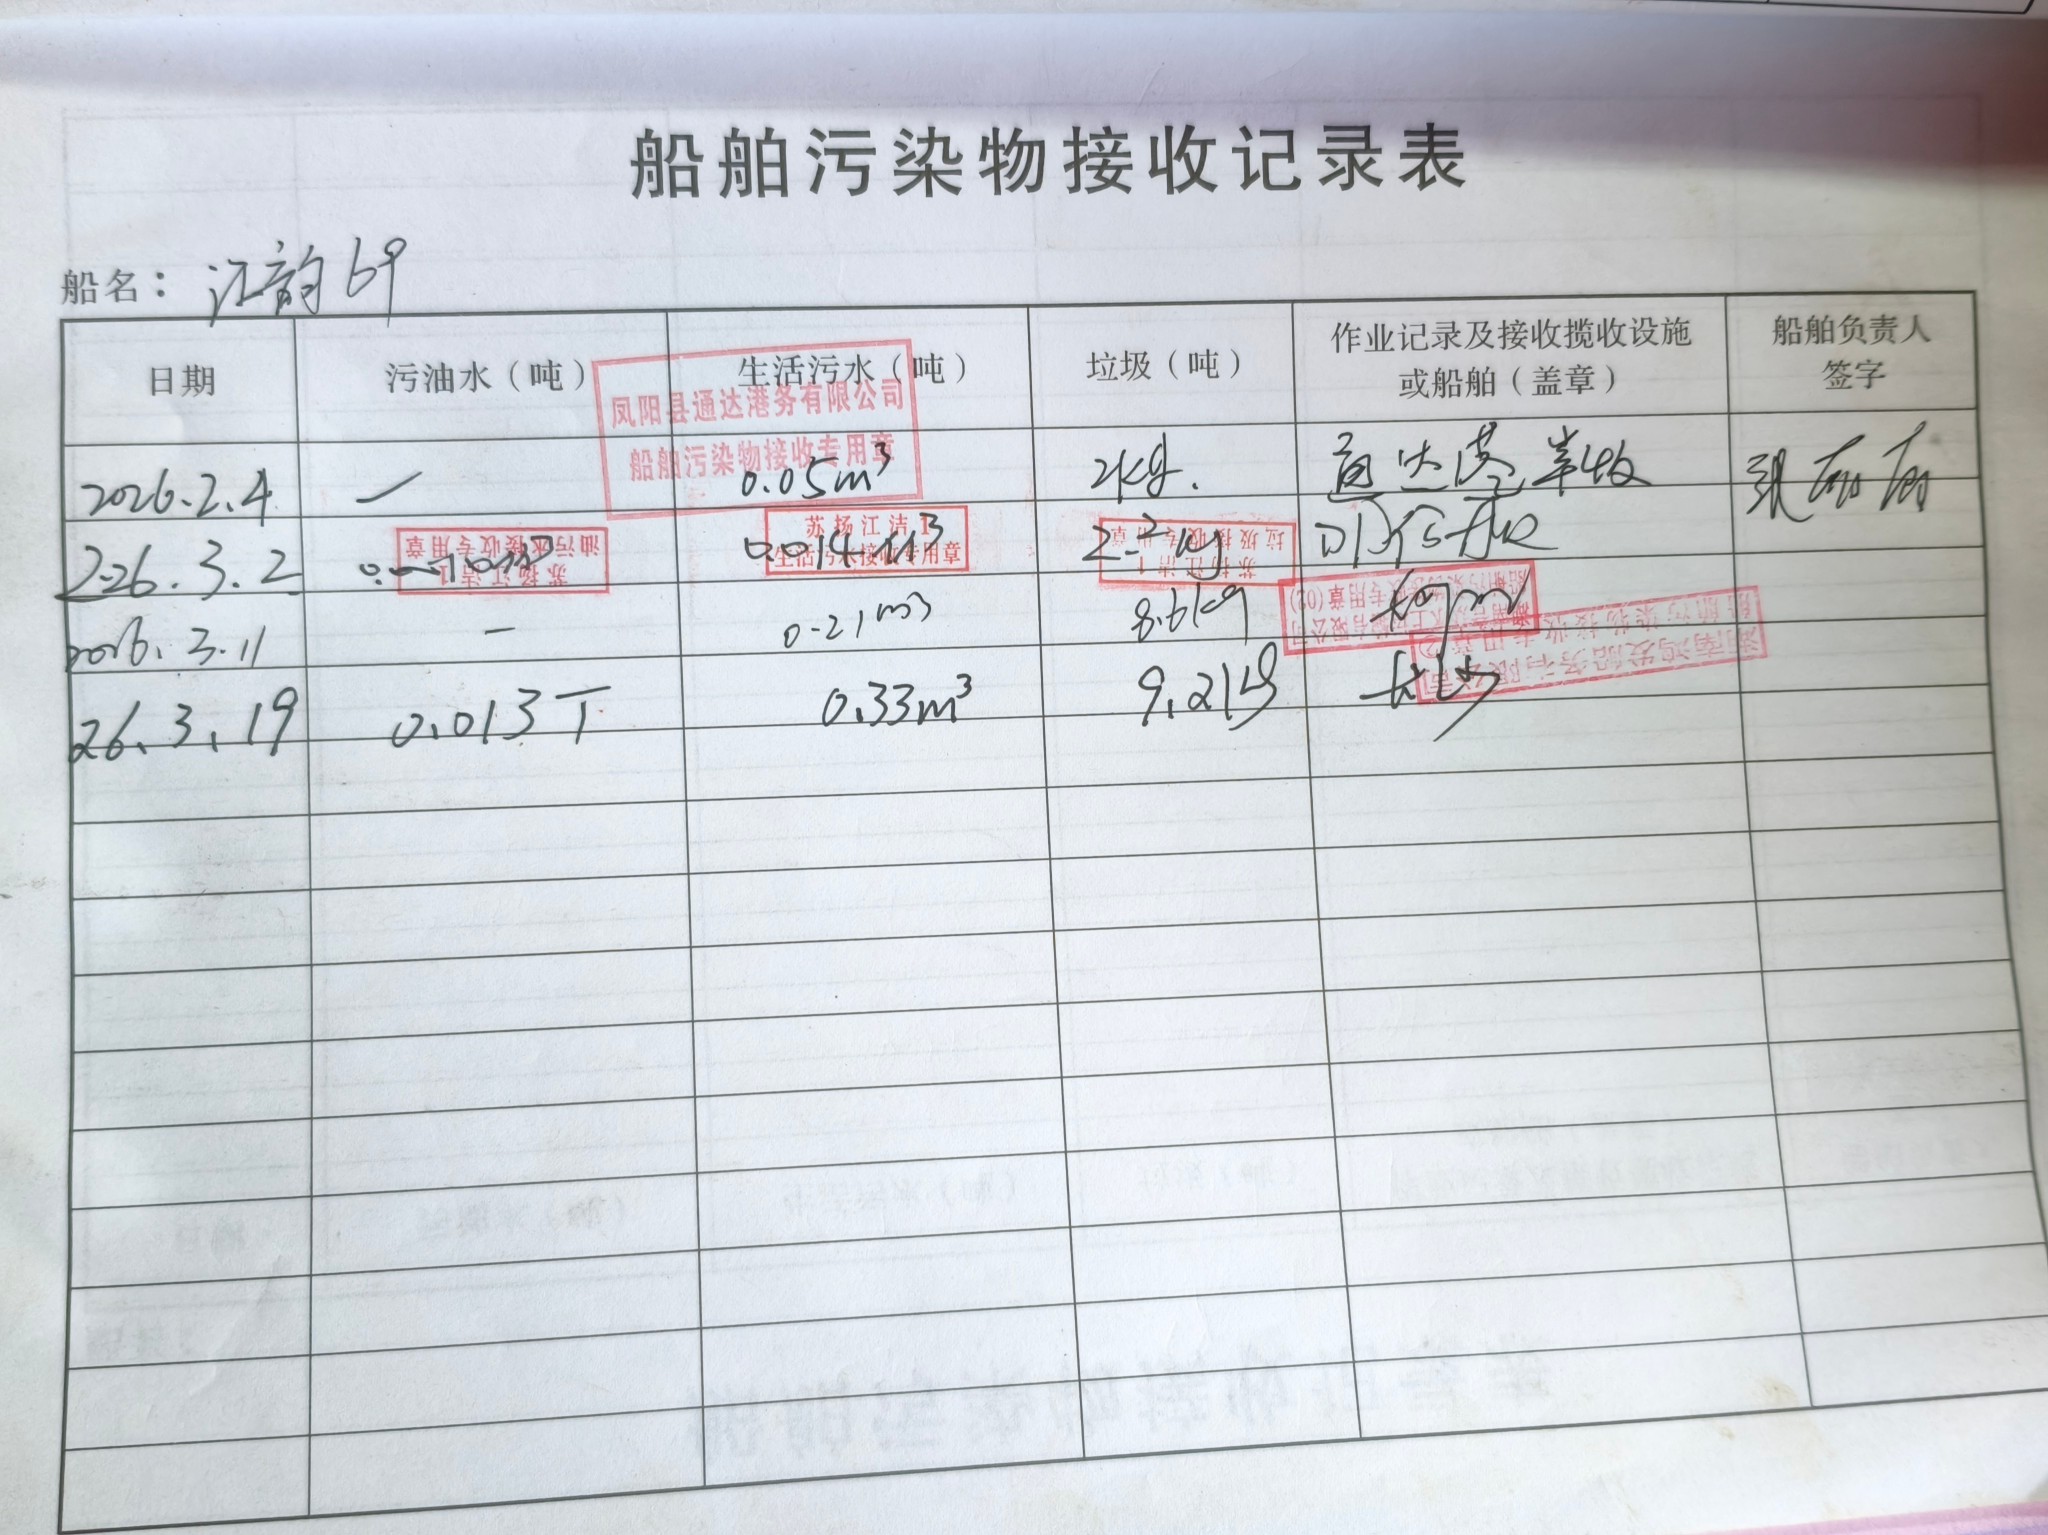 船舶污染物接收记录表
船名：江韵69
日期 污油水（吨） 生活污水（吨） 垃圾（吨） 作业记录及接收揽收设施或船舶（盖章） 船舶负责人签字
凤阳县通达港务有限公司
船舶污染物接收专用章
2026.2.4 — 0.05m³ 2kg. 通达港
苏扬江洁1
油污水接收专用章
苏扬江洁1
生活污水接收专用章
苏扬江洁1
垃圾接收专用章
2026.3.2 0.014m³ 2.2kg
2026.3.11 — 0.21m³ 8.6kg
专用章(02)
湖南鸿发船务有限公司
船舶污染物接收专用章
26.3.19 0.013T 0.33m³ 9.2kg 长沙